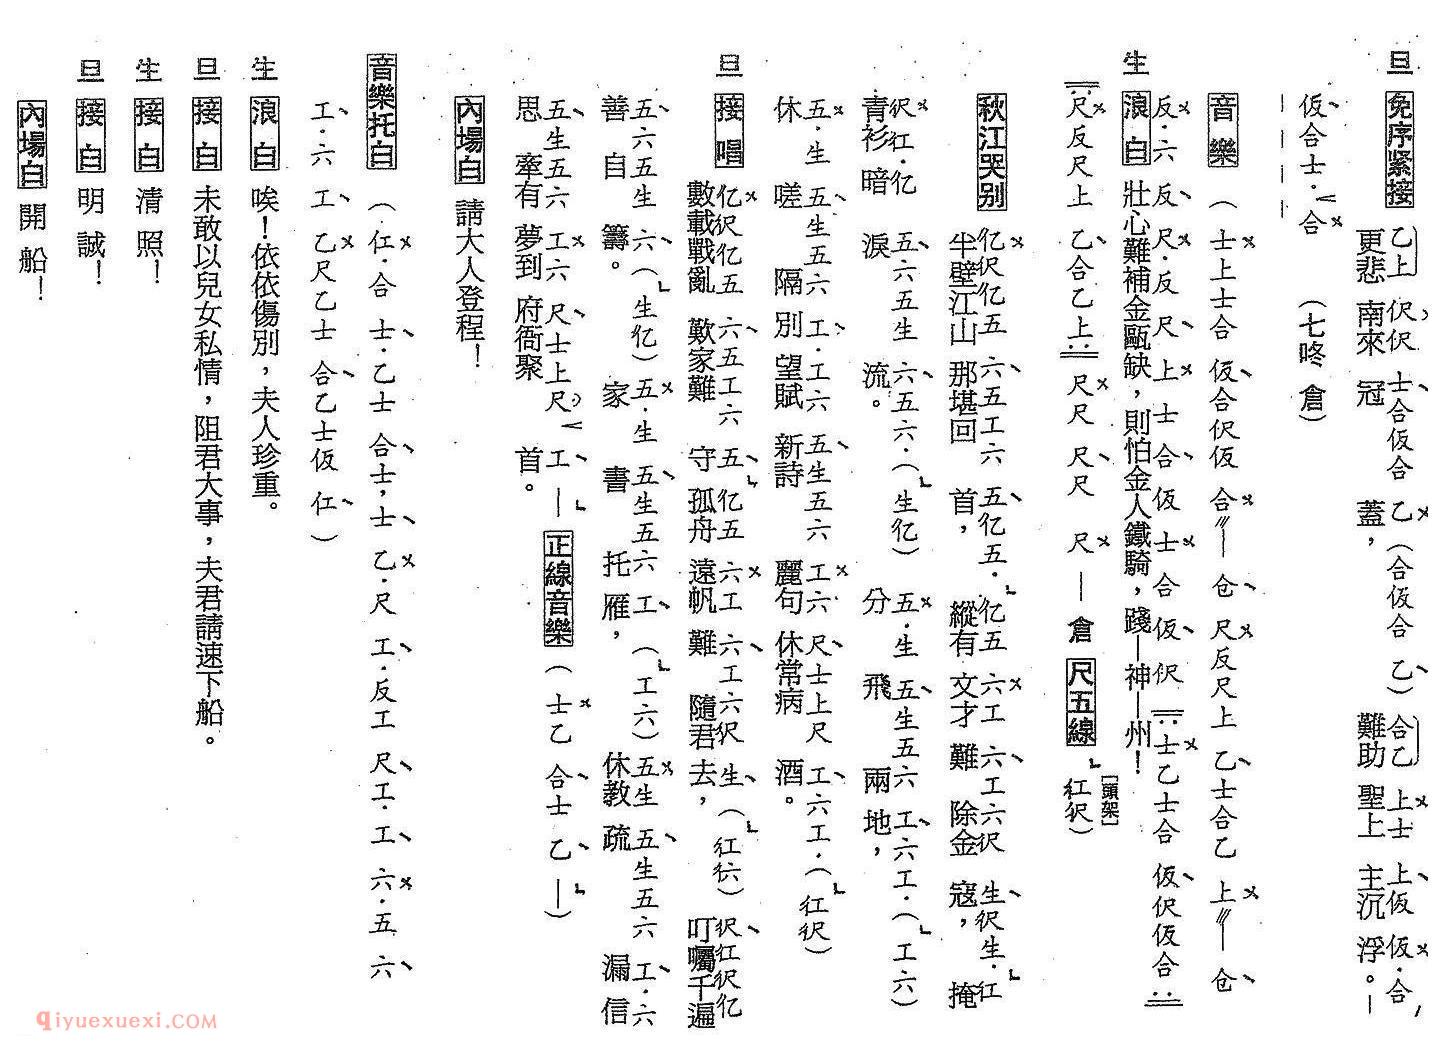 旦 免序紧接 乙上 伬伬 士合仮合 乙(合仮合 乙) 合乙 上士 上仮 仮·合
更悲 南來 冠 蓋, 難助 聖上 主沉 浮。—
仮合士·合 (七咚 倉)
音樂 (士上士合 仮合伬仮 合—仓 尺反尺上 乙士合乙 上—仓
生 反·六 反尺·反尺上士合仮士合仮伬 士乙士合 仮伬仮合
浪白 壯心難補金甌缺,則怕金人鐵騎,踐—神—州!
尺反尺上 乙合乙上 尺尺 尺尺 尺—倉 尺五線 [頭架] 仜伬)
秋江哭别 亿伬亿五 六五工六 五亿五· 亿五 六工 六工六伬 生伬生·仜
半壁江山 那堪回 首, 縱有 文才 難 除金 寇, 掩
伬仜·亿 五六五生 六五六·(生亿) 五·生 五生五六 工六工·(工六)
青衫暗 淚 流。 分 飛 兩 地,
五·生 五生五六 工·工六 五生五六 工六 尺士上尺 工六工·(仜伬)
休 嗟 隔 別 望賦 新詩 麗句 休常病 酒。
旦 接唱 亿伬亿五 六五工六 五 亿五 六工 六工六伬 生(仜𠆾) 伬仜伬亿
數載戰亂 歎家難 守 孤舟 遠帆 難 隨君 去, 叮囑千遍
五六五生 六(生亿) 五·生 五生五六 工(工六) 五生 五生五六 工·六
善 自 籌。 家 書 托 雁, 休教 疏 漏 信
五生五六 工六 尺士上尺 工— 正線音樂 (士乙 合士 乙—)
思 牽有 夢到 府衙聚 首。
內場白 請大人登程!
音樂托白 (仜·合 士·乙士 合士,士 乙·尺 工·反工 尺工·工 六·五 六
工·六 工 乙尺乙士 合乙士仮 仜)
生 浪白 唉!依依傷別,夫人珍重。
旦 接白 未敢以兒女私情,阻君大事,夫君請速下船。
生 接白 清照!
旦 接白 明誠!
內場白 開船!
qiyuexuexi.COM